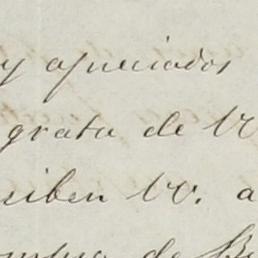 y apreciados
grata de VV
riben VV. a
de B